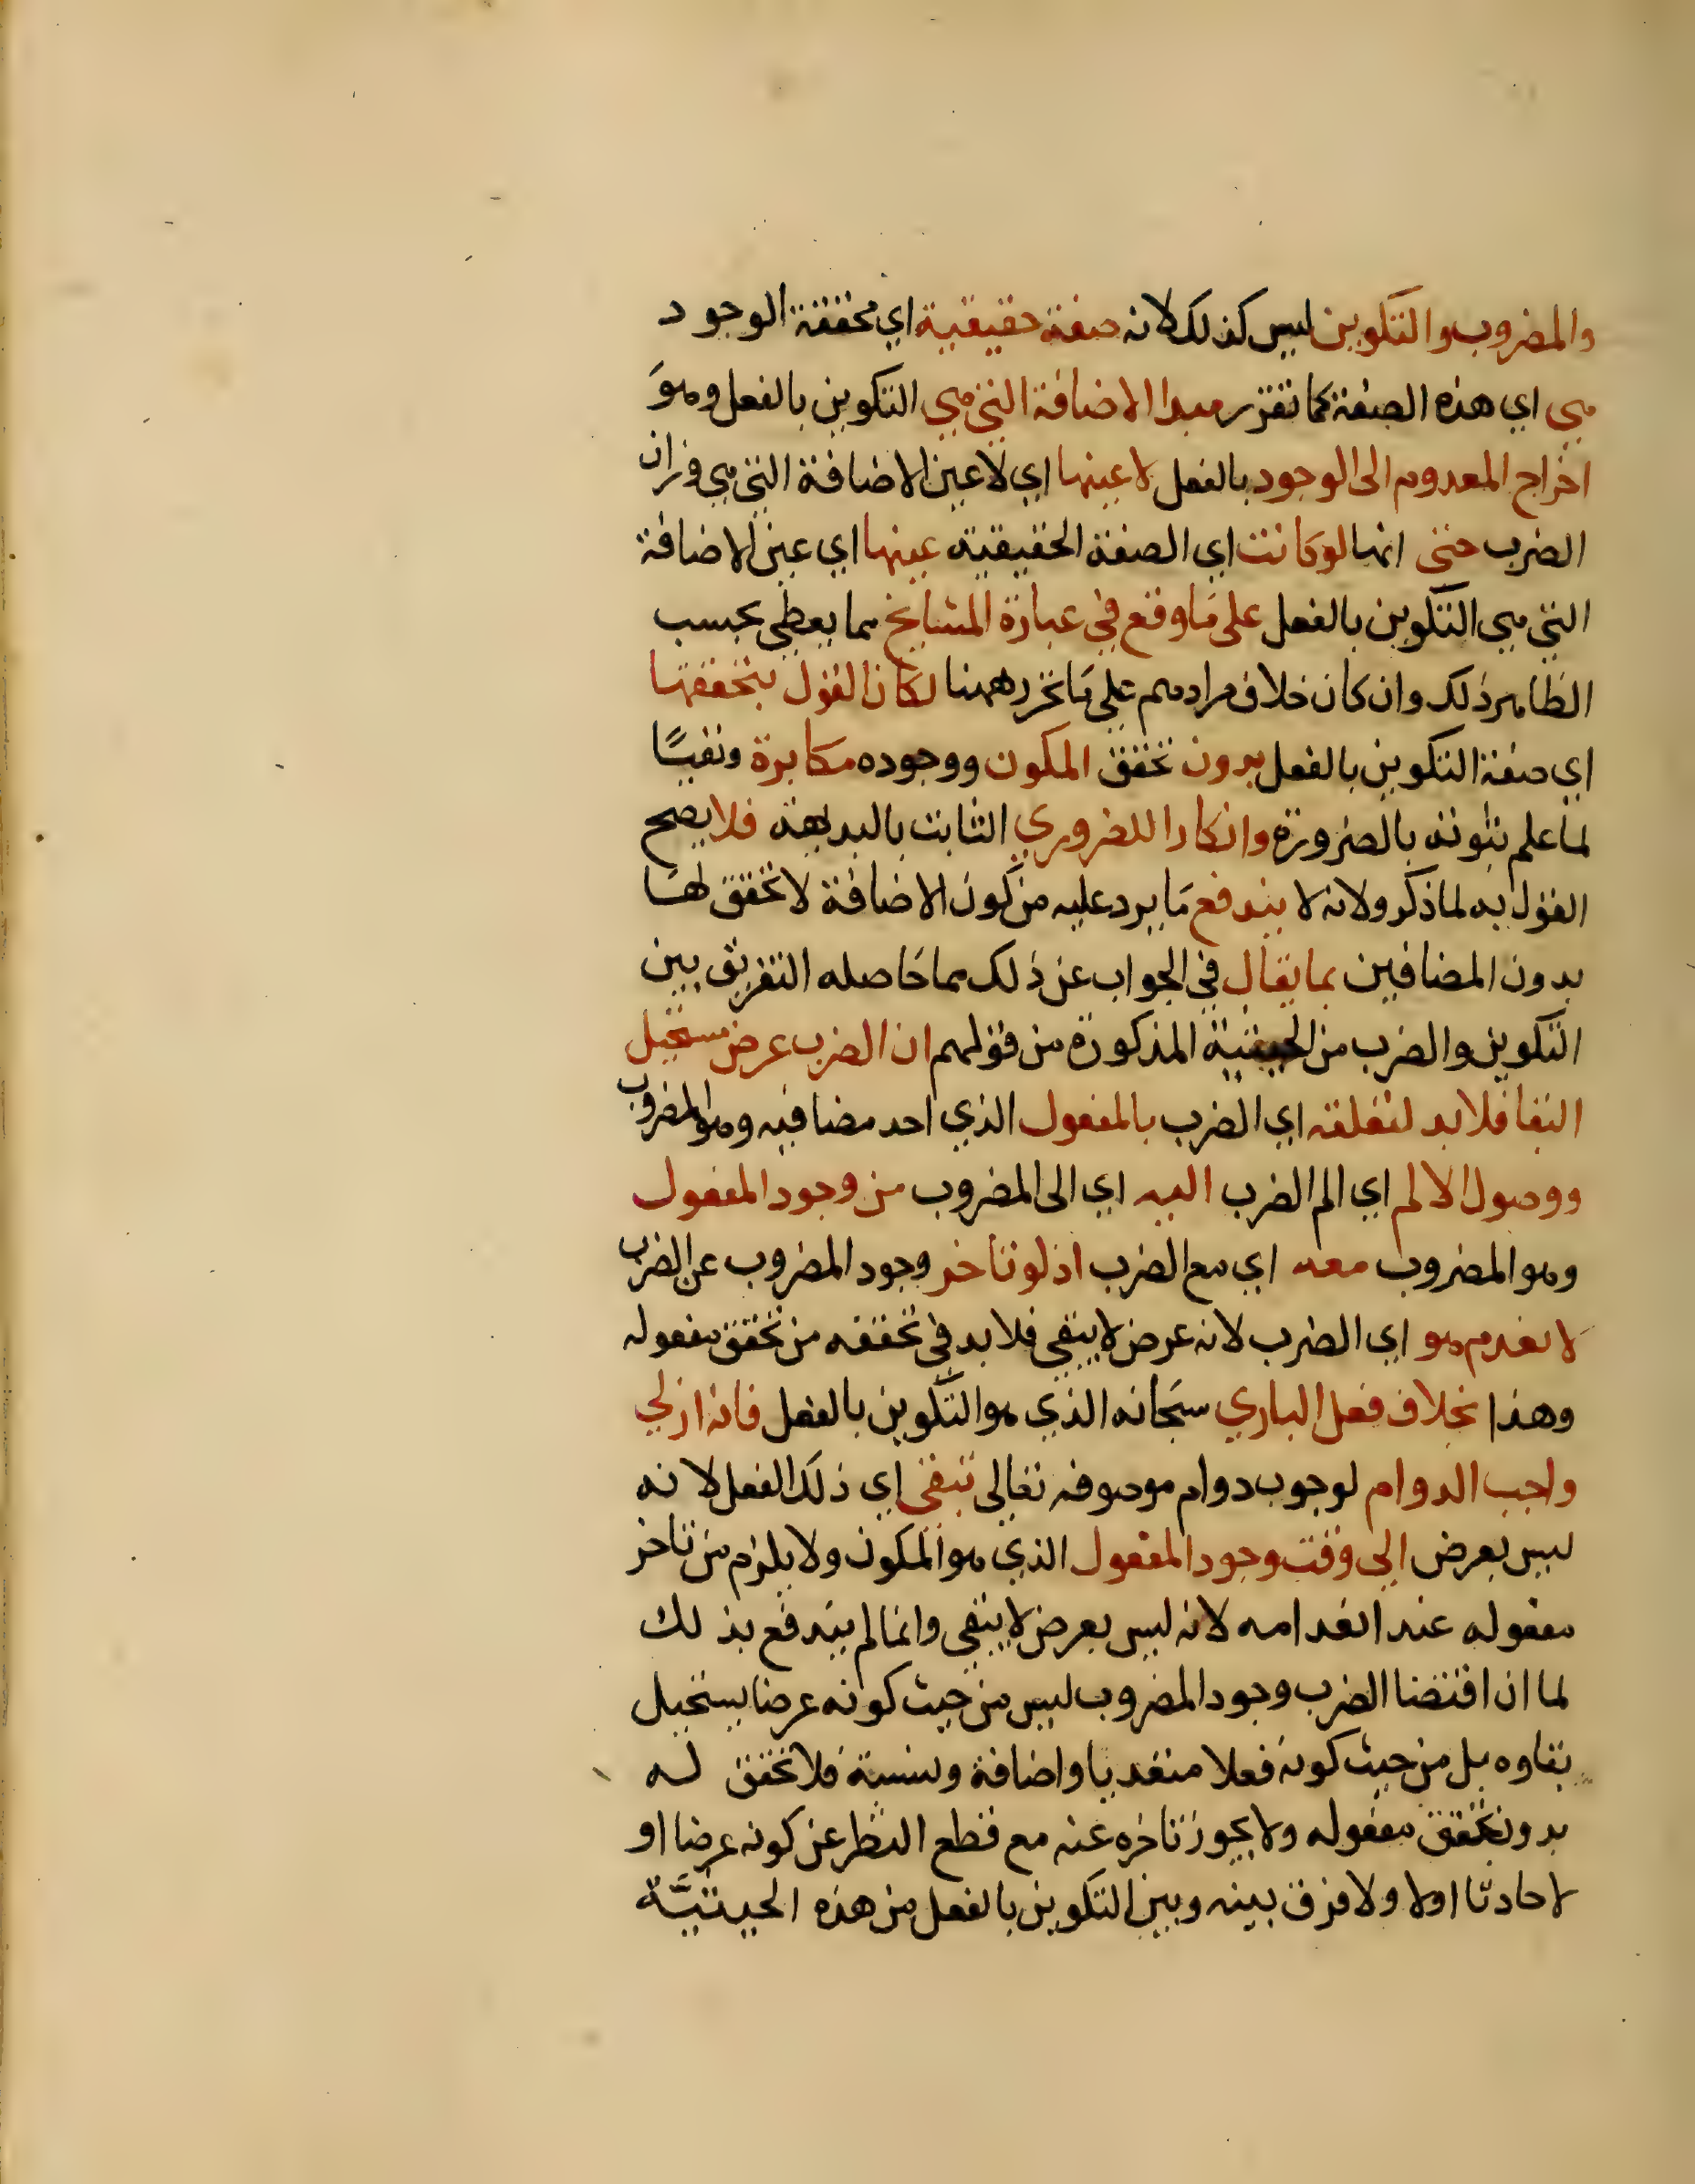 والمضروب والتكوين ليس كذلك لانه صفة حقيقية اي محققة الوجود
هي اي هذه الصفة كما تقرر مبدا الاضافة التي هي التكوين بالفعل وهو
اخراج المعدوم الى الوجود بالفعل لا عينها اي لا عين الاضافة التي هي وزان
الضرب حتى انها لو كانت اي الصفة الحقيقية عينها اي عين الاضافة
التي هي التكوين بالفعل على ما وقع في عبارة المشايخ مما يعطي بحسب
الظاهر ذلك وان كان خلاف مرادهم على ما تحرر ههنا لكان القول بتحققها
اي صفة التكوين بالفعل بدون تحقق المكون ووجوده مكابرة ونفيًا
لما علم ثبوته بالضرورة وانكارا للضروري الثابت بالبديهة فلا يصح
القول به لما ذكر ولانه لا يندفع ما يرد عليه من كون الاضافة لا تحقق لها
بدون المضافين بما يقال في الجواب عن ذلك مما حاصله التفريق بين
التكوين والضرب من الحيثية المذكورة من قولهم ان الضرب عرض مستحيل
البقا فلا بد لتعلقه اي الضرب بالمفعول الذي احد مضافيه وهو المضروب
ووصول الالم اي الم الضرب اليه اي الى المضروب من وجود المفعول
وهو المضروب معه اي مع الضرب اذ لو تاخر وجود المضروب عن الضرب
لانعدم هو اي الضرب لانه عرض لا يبقى فلا بد في تحققه من تحقق مفعوله
وهذا بخلاف فعل الباري سبحانه الذي هو التكوين بالفعل فانه ازلي
واجب الدوام لوجوب دوام موصوفه تعالى تبقى اي ذلك الفعل لانه
ليس بعرض الى وقت وجود المفعول الذي هو المكون ولا يلزم من تاخر
مفعوله عنه انعدامه لانه ليس بعرض لا يبقى وانما لم يندفع بذلك
لما ان اقتضا الضرب وجود المضروب ليس من حيث كونه عرضا يستحيل
بقاوه بل من حيث كونه فعلا متعديا واضافة ونسبة فلا تحقق له
بدون تحقق مفعوله ولا يجوز تاخره عنه مع قطع النظر عن كونه عرضا او
لا حادثا او لا ولا فرق بينه وبين التكوين بالفعل من هذه الحيثيَّة